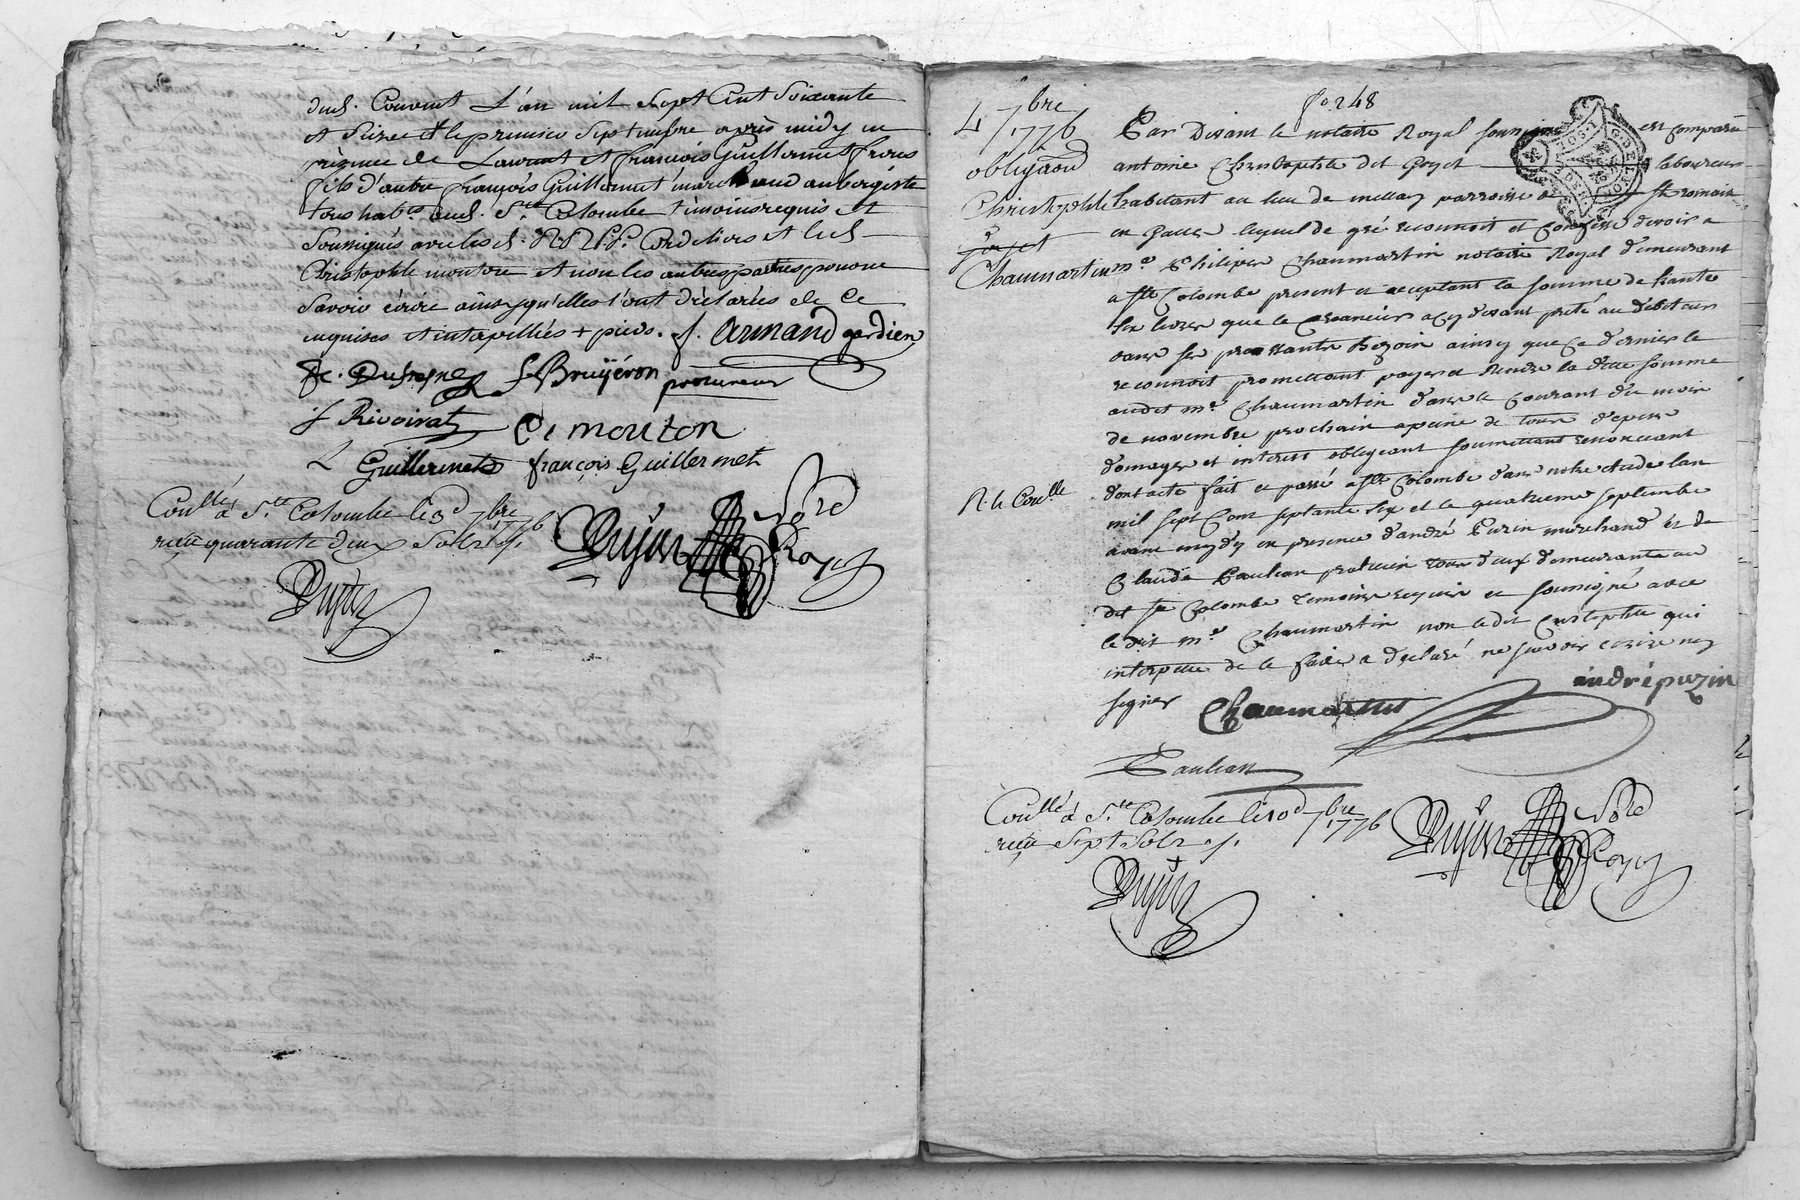 dud. Couvent L'an mil Sept Cent Soixante
et Seize et le premier Septembre après midy en
présence de Laurant et françois Guillermet frères
fils d'autre françois Guillermet marchand aubergiste
tous habts. aud. Ste. Colombe témoins requis et
Soussignés avec les d. R.R. P.P. Cordeliers et led.
Christophle moutore et non les autres parties pour ne
Savoir écrire ainsy qu'elles l'ont déclarées de ce
enquises et interpellées + pieds. f. Armand gardien
fc. Dufresne f. Bruÿéron procureur
f. Rivoirat C mouton
L Guillermet françois Guillermet
Conllé à Ste. Colombe le 3d 7bre 1776
reçu quarante deux Sols
Dujat Royet
4 7bre 1776
obligãon
Christophle
Chaumartin
fo 248
Par Devant le notaire Royal soussigné est comparu
antoine Christophle dit Goyet laboureur
habitant au lieu de mellay parroisse de St. romain
en gallet lequel de gré reconnoit et confesse devoir a
me. Philipes Chaumartin notaire Royal demeurant
a ste Colombe present et aceptant la somme de trante
six livres que le Creancier a cy devant preté au débiteur
dans ses pressants bezoin ainsy que ce dernier le
reconnoit promettant payer et rendre la ditte somme
audit me. Chaumartin dans le Courant du moix
de novembre prochain apeine de tous depens
domages et interets obligeant soumettant renonceant
dont acte fait et passé a ste Colombe dans notre étude lan
R. le Con.lle
mil sept Cent septante six et le quatrieme septembre
avant mydy en presence d'andré Puzin marchand et de
Claude Paulian praticien tous deux demeurants au
dit ste Colombe temoins requis et soussigné avec
le dit me. Chaumartin non ledit Christophle qui
interpellé de le faire a declaré ne savoir ecrire ny
signer Chaumartin andré puzin
Paulian
Conllé à Ste. Colombe le 10d 7bre 1776
reçu Sept Sols
Dujat Royet